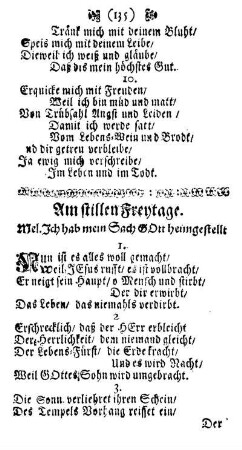 (135)
Tränk mich mit deinem Bluht/
Speis mich mit deinem Leibe/
Dieweil ich weiß und gläube/
Daß dis mein höchstes Gut.
10.
Erquicke mich mit Freuden/
Weil ich bin müd und matt/
Von Trübsahl Angst und Leiden/
Damit ich werde satt/
Vom Lebens-Wein und Brodt/
nd dir getreu verbleibe/
Ja ewig mich verschreibe/
Im Leben und im Todt.
Am stillen Freytage.
Mel. Ich hab mein Sach GOtt heimgestellt
1.
Nun ist es alles woll gemacht/
Weil JEsus rufft/ es ist vollbracht/
Er neigt sein Haupt/ o Mensch und stirbt/
Der dir erwirbt/
Das Leben/ das niemahls verdirbt.
2
Erschrecklich/ daß der HErr erbleicht
Der Herrlichkeit/ dem niemand gleicht/
Der Lebens-Fürst/ die Erde kracht/
Und es wird Nacht/
Weil GOttes Sohn wird umgebracht.
3.
Die Sonn verliehret ihren Schein/
Des Tempels Vorhang reisset ein/
Der